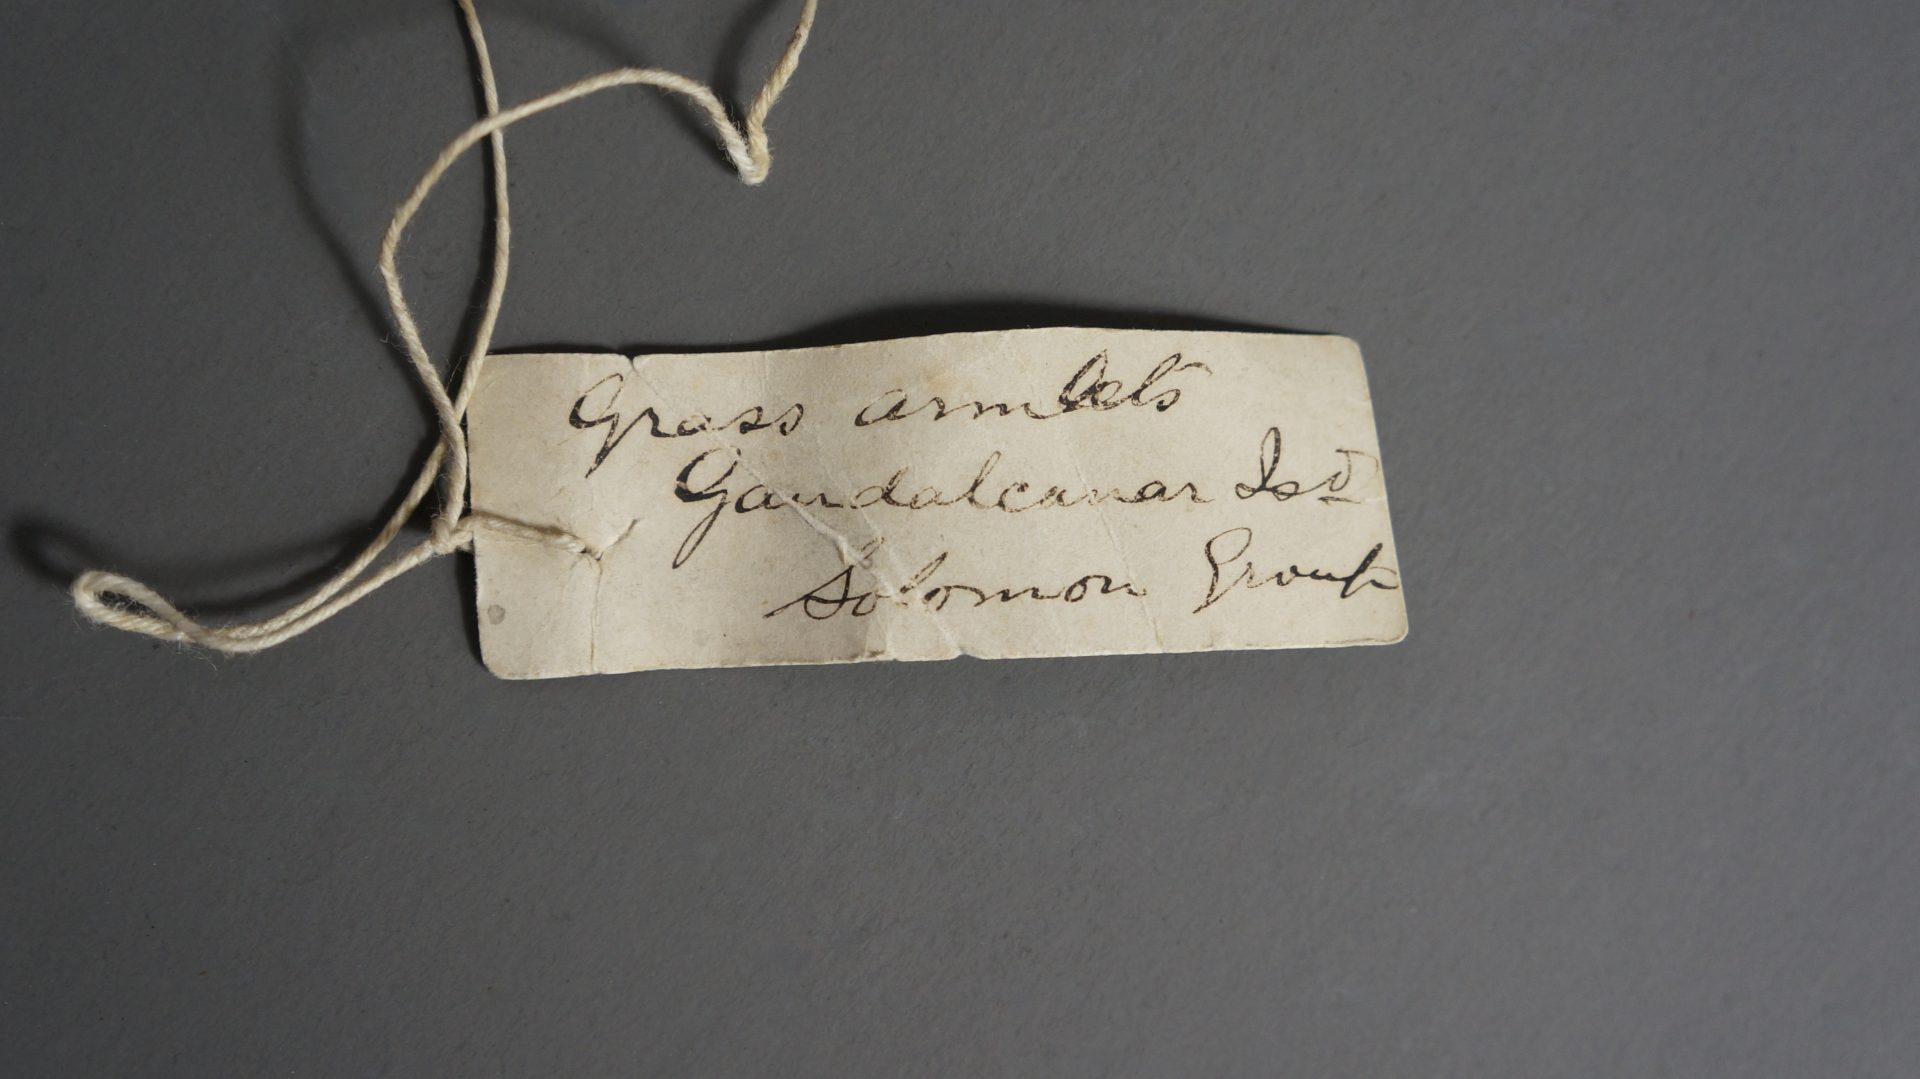 Grass armlets
Gaudalcanar Isd
Solomon Group